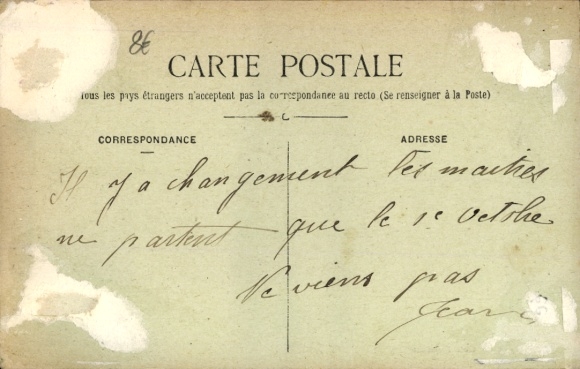 8€
CARTE POSTALE
Tous les pays étrangers n'acceptent pas la correspondance au recto (Se renseigner à la Poste)
CORRESPONDANCE
ADRESSE
Il y a changement les maitres
ne partent que le 1e Octobre
Ne viens pas
Jean